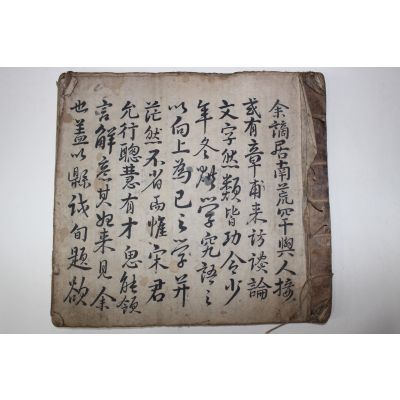 余謫居南荒罕與人接
或有章甫来訪談論
文字然類皆功令少
年冬㷀學究語之
以向上為己之学幷
茫然不省而惟宋君
允行聰慧有才思能領
言解意其始来見余
也盖以縣試句題欲